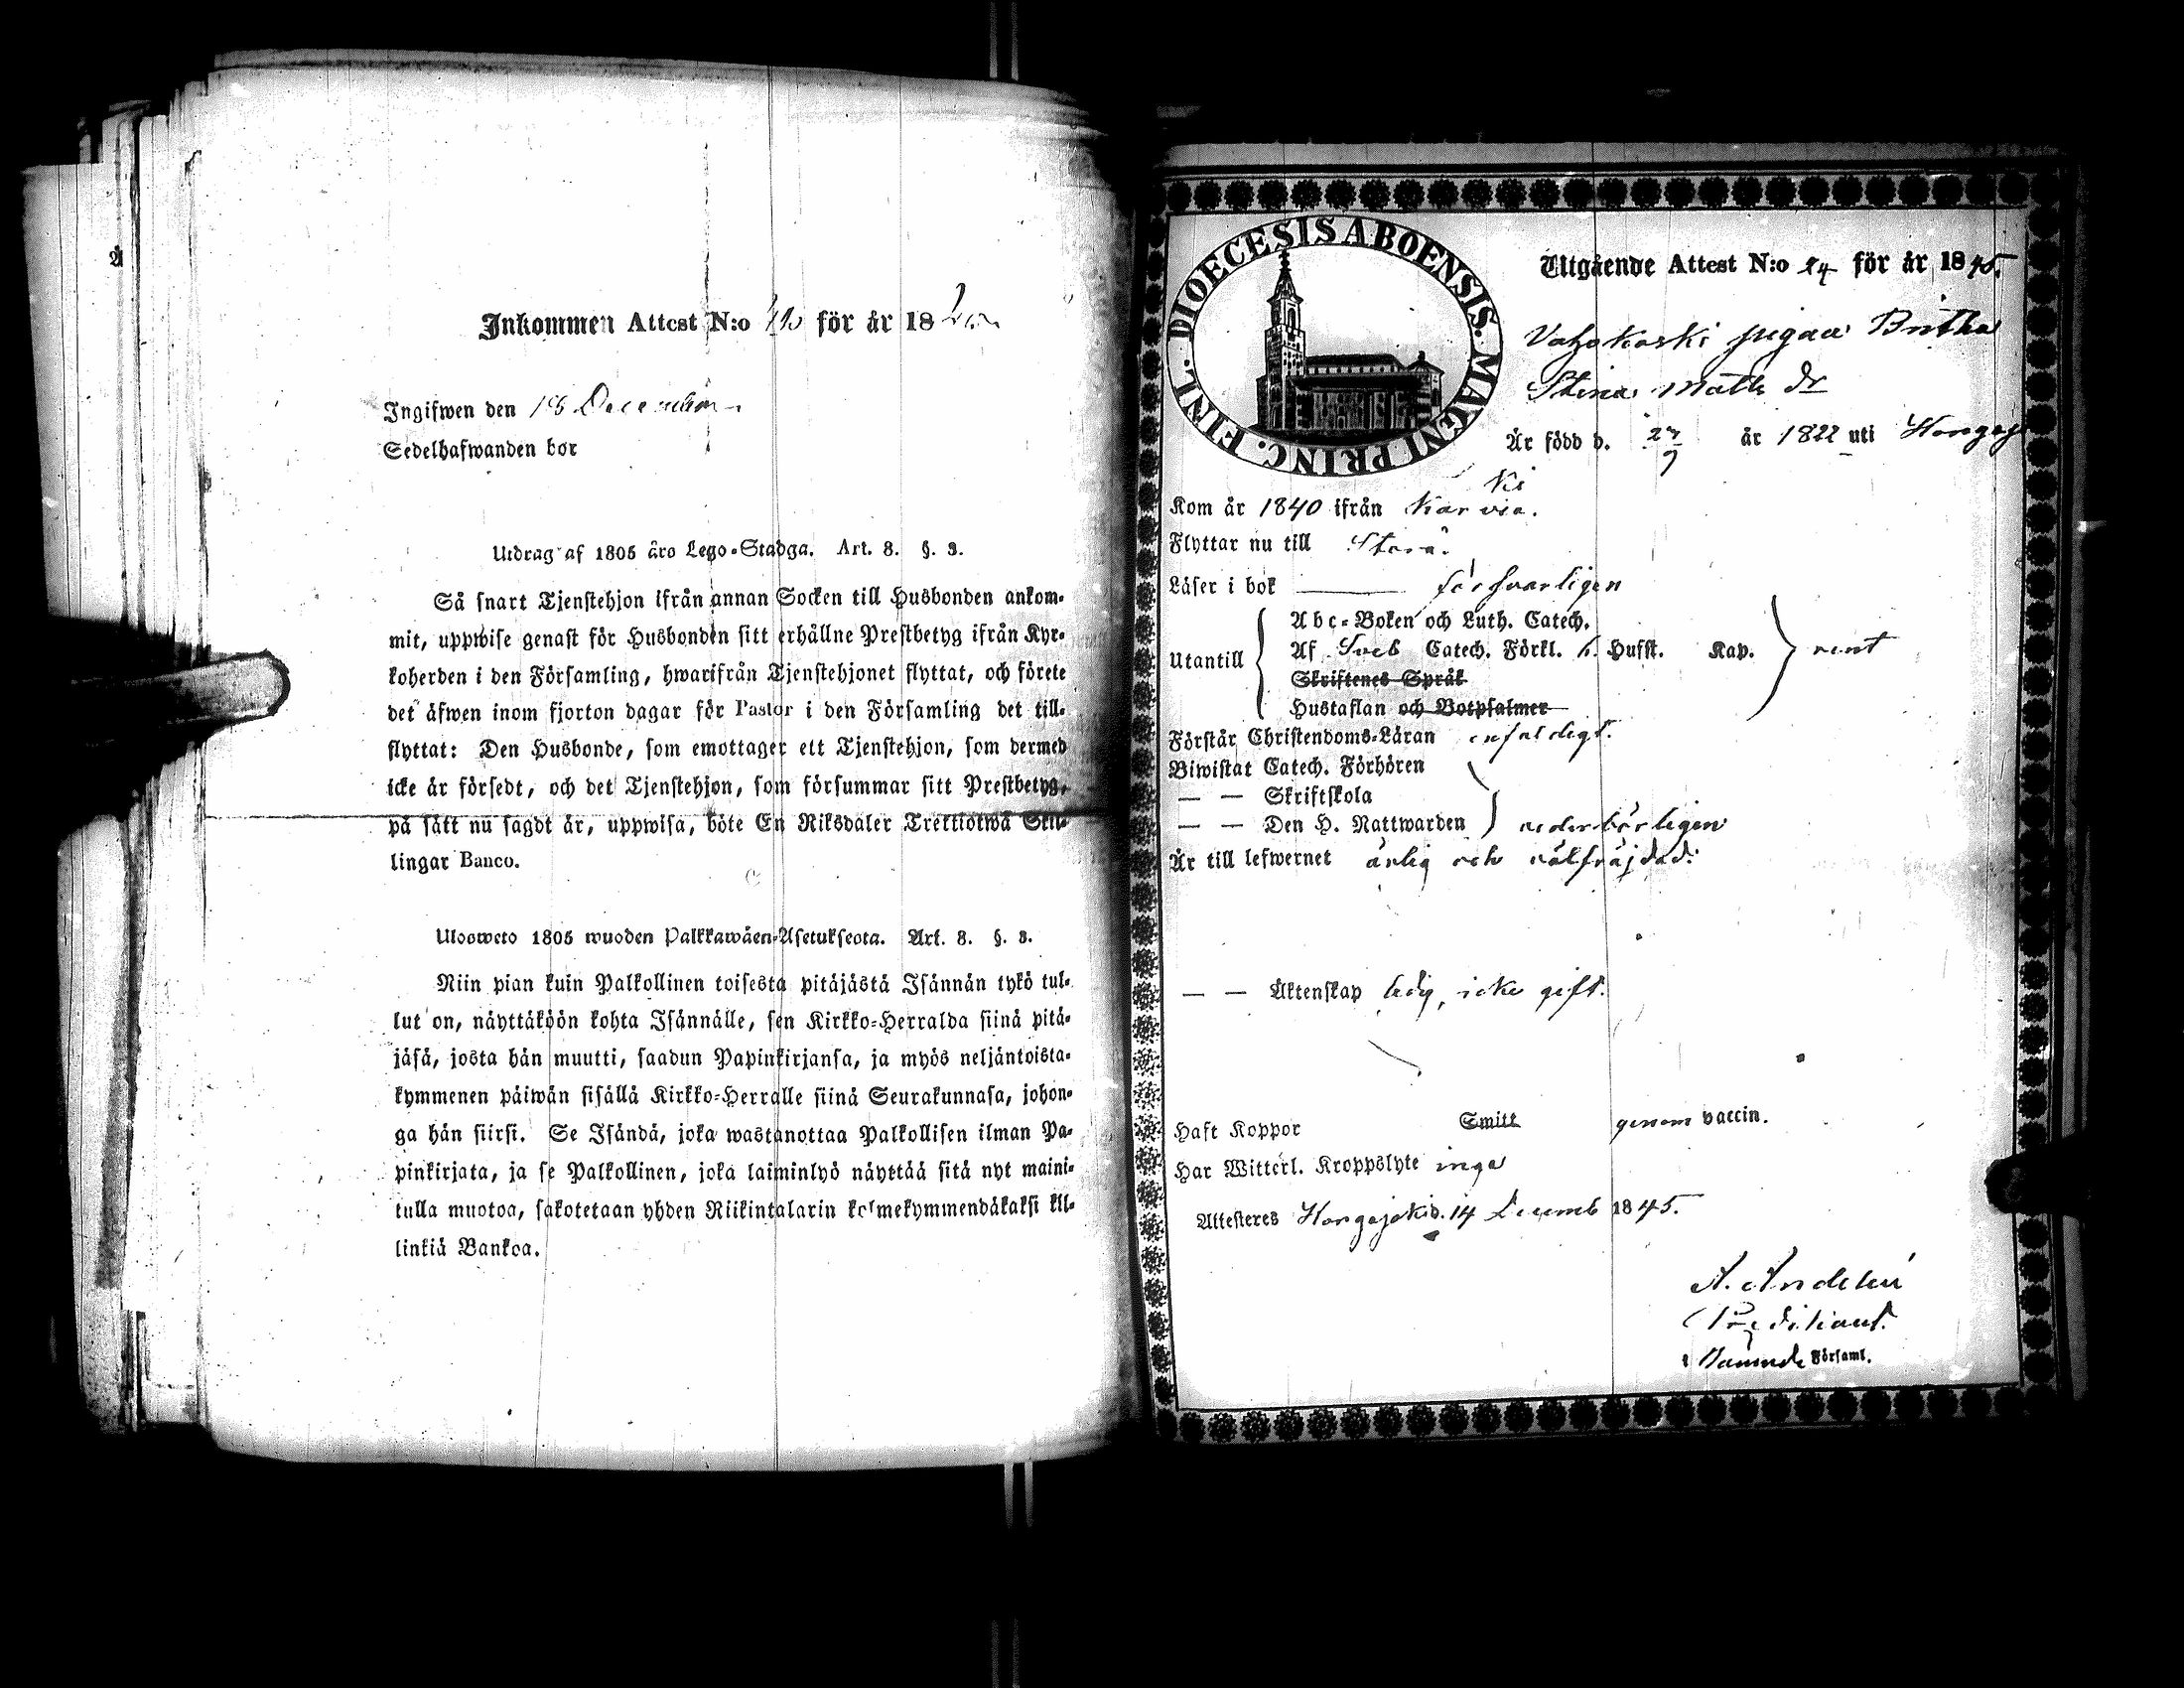 Inkommen Attest N:o för år 18
Ingifwen den 18 December
Sedelhafwanden bor
Utdrag af 1805 års Lego-Stadga. Art. 8. §. 3.
Så snart Tjenstehjon ifrån annan Socken till Husbonden ankom-
mit, uppwise genast för Husbonden sitt erhållne Prestbetyg ifrån Kyr-
koherden i den Församling, hwarifrån Tjenstehjonet flyttat, och förete
det äfwen inom fjorton dagar för Pastor i den Församling det till-
flyttat: Den Husbonde, som emottager ett Tjenstehjon, som dermed
icke är försedt, och det Tjenstehjon, som försummar sitt Prestbetyg,
på sätt nu sagdt är, uppwisa, böte En Riksdaler Trettiotwå Skil-
lingar Banco.
Ulosweto 1805 wuoden Palkkawäen-Asetuksesta. Art. 8. §. 3.
Niin pian kuin Palkollinen toisesta pitäjästä Isännän tykö tul-
lut on, näyttäköön kohta Isännälle, sen Kirkko-Herralda siinä pitä-
jäsä, josta hän muutti, saadun Papinkirjansa, ja myös neljäntoista-
kymmenen päiwän sisällä Kirkko-Herralle siinä Seurakunnasa, johon-
ga hän siirsi. Se Isändä, joka wastanottaa Palkollisen ilman Pa-
pinkirjata, ja se Palkollinen, joka laiminlyö näyttää sitä nyt maini-
tulla muotoa, sakotetaan yhden Riikintalarin kolmekymmendäkaksi kil-
linkiä Bankoa.
DIOECESIS ABOENSIS. MAGNI PRINC. FINL.
Utgående Attest N:o 24 för år 1845.
pigan Britha
Stina Matts dr
Är född d. 27/9 år 1822 uti Hongajo
ki
Kom år 1840 ifrån Karvia.
Flyttar nu till Storå.
Läser i bok försvarligen
Utantill
Abc-Boken och Luth. Catech.
Af Sveb Catech. Förkl. 6. Hufst. Kap. rent
Skriftenes Språk
Hustaflan och Botpsalmer
Förstår Christendoms-Läran enfaldigt.
Biwistat Catech. Förhören
— — Skriftskola
— — Den H. Nattwarden vederbörligen
Är till lefwernet ärlig och välfräjdad.
— — Äktenskap ledig, icke gift.
Haft Koppor Smitt genom vaccin.
Har Witterl. Kroppslyte inga
Attesteres Hongojoki d. 14 Decemb 1845.
A. Andelin
Predikant.
i Församl.